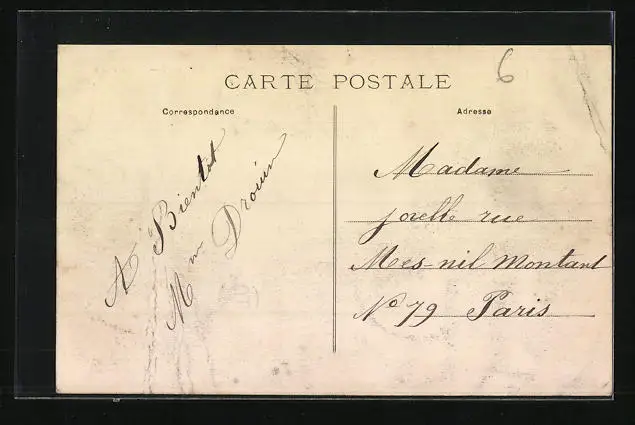 6
CARTE POSTALE
Correspondance
A Bientot
Mme Drouin
Adresse
Madame
jorelle rue
Mes-nil Montant
No 79 Paris